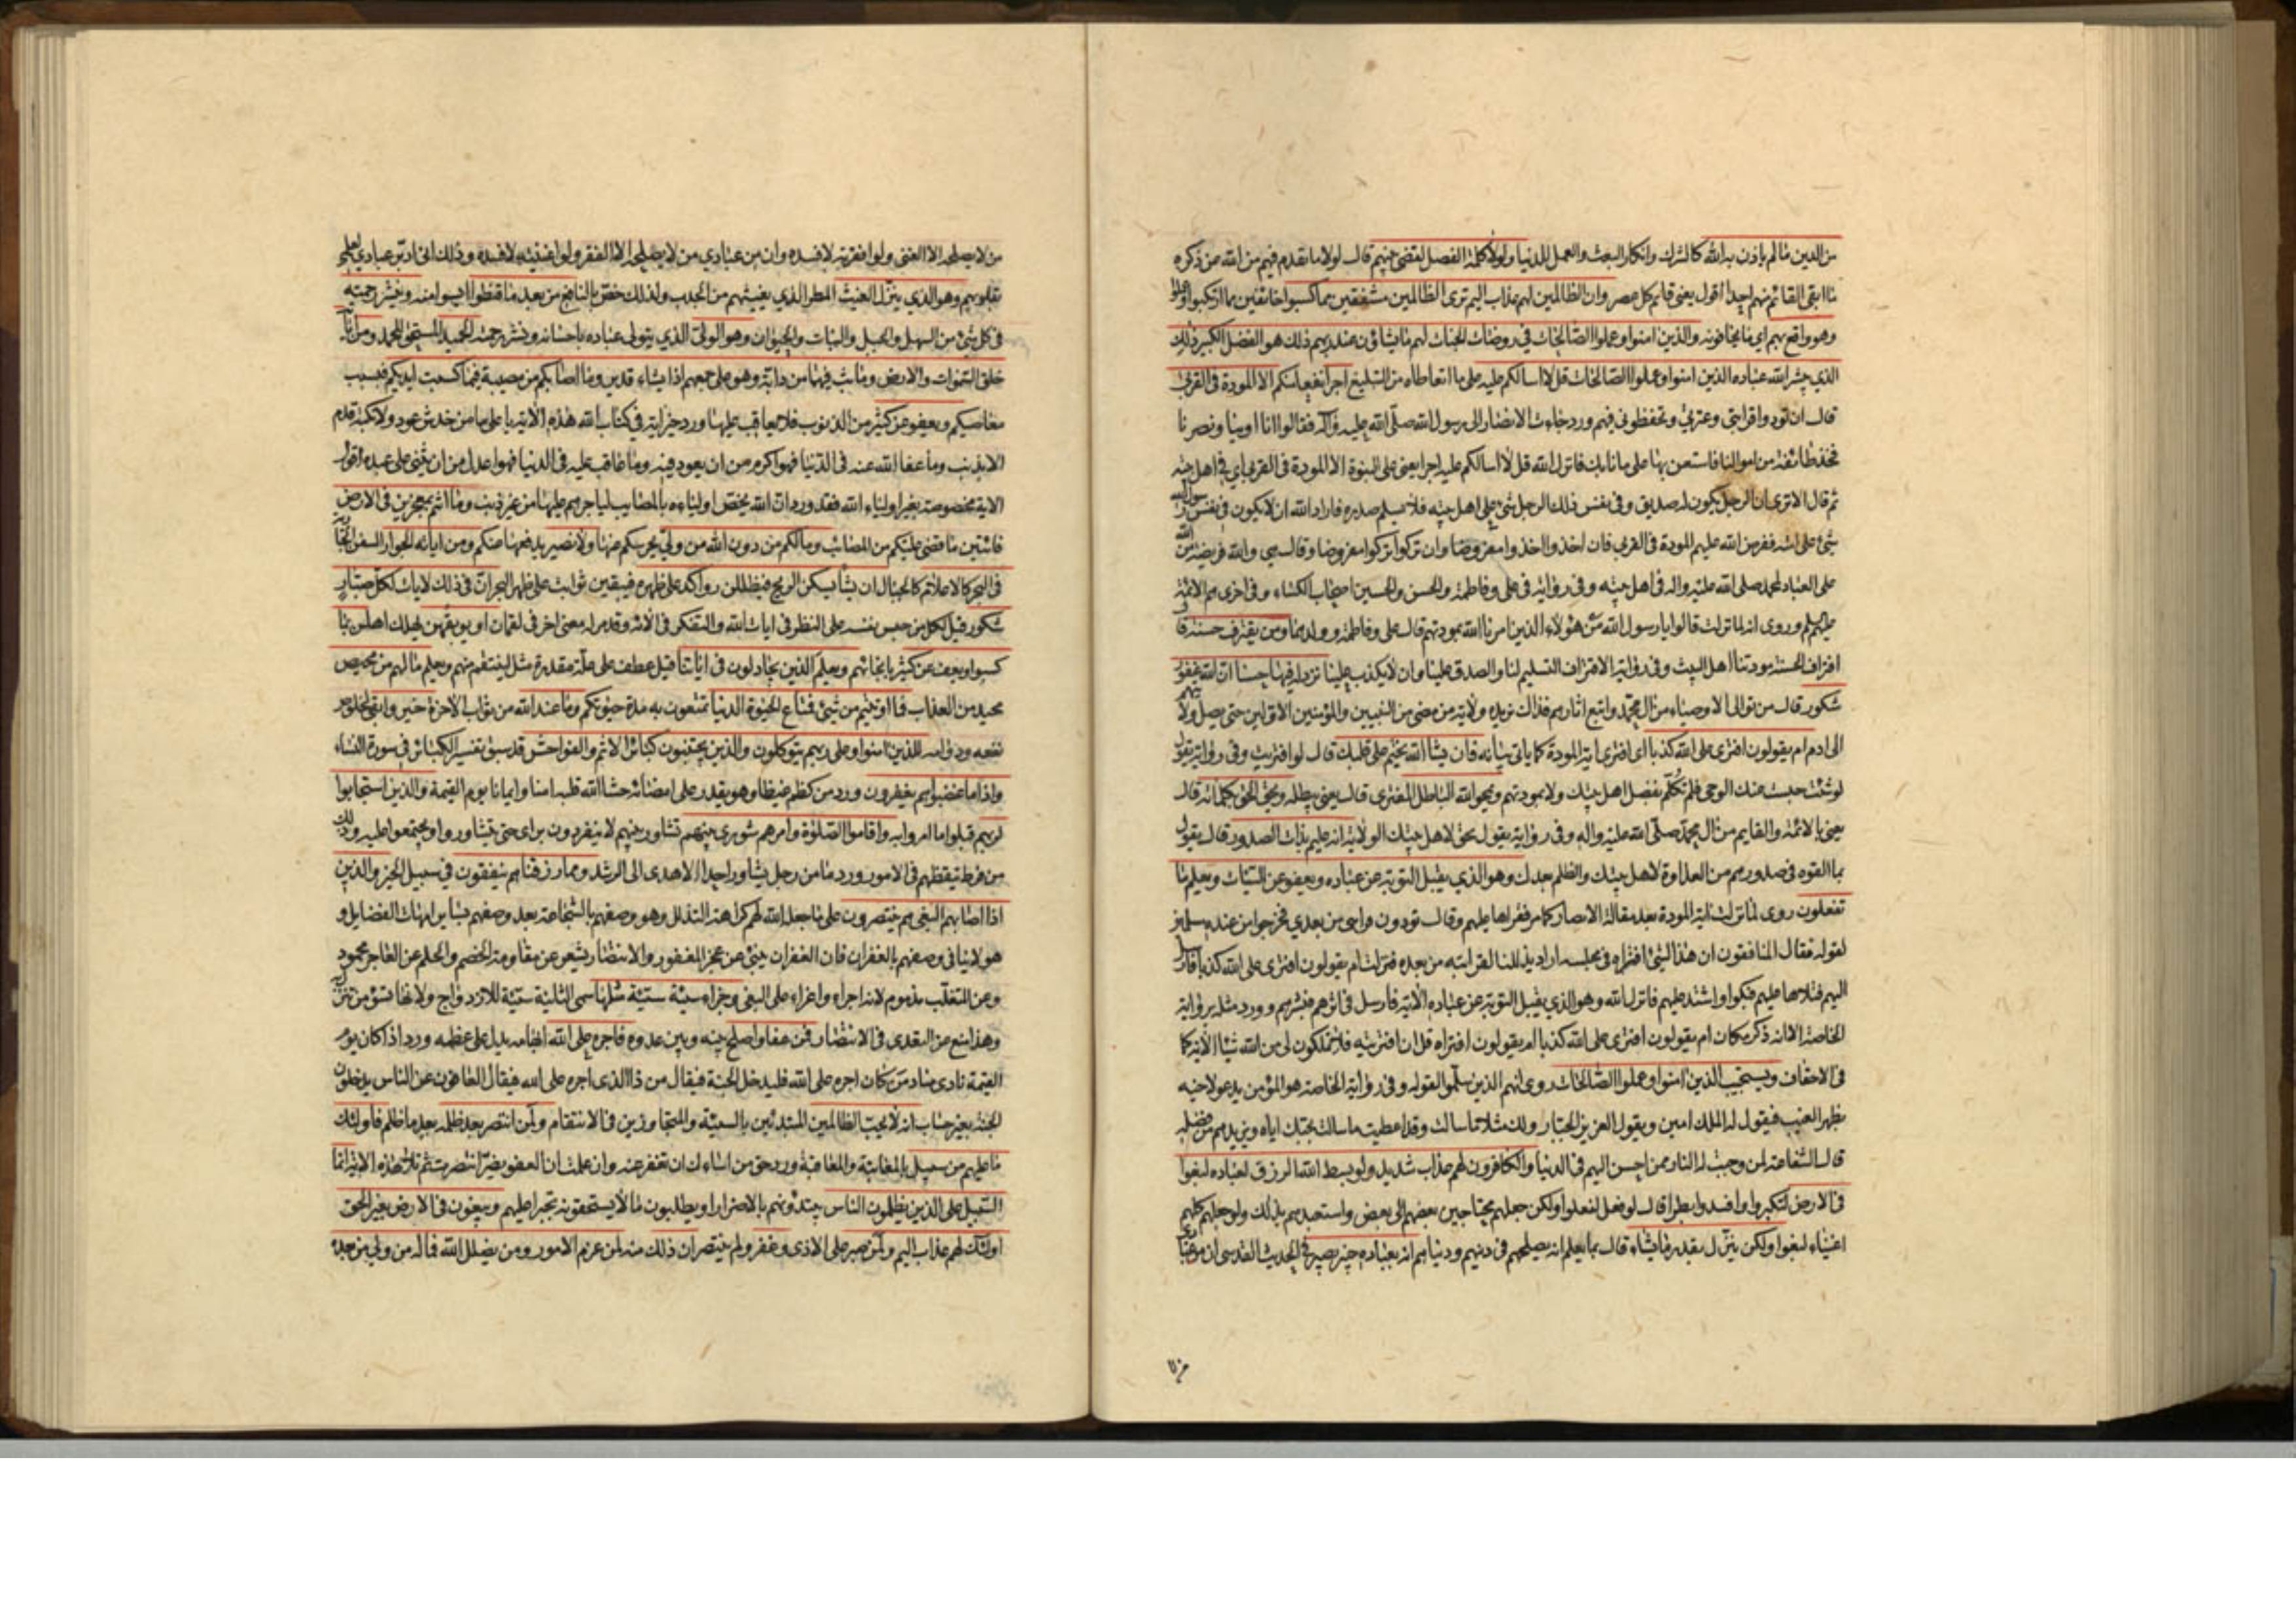 من الدين ما لم ياذن به الله كالشرك وانكار البعث والعمل للدنيا ولولا كلمة الفصل لقضي بينهم قال لولا ما تقدم فيهم من الله عز ذكره
ما ابقى القائم منهم احدا اقول يعني قائم كل عصر وان الظالمين لهم عذاب اليم ترى الظالمين مشفقين مما كسبوا خائفين مما ارتكبوا وعملوا
وهو واقع بهم اي ما يخافونه والذين امنوا وعملوا الصالحات في روضات الجنات لهم ما يشاؤن عند ربهم ذلك هو الفضل الكبير ذلك
الذي يبشر الله عباده الذين امنوا وعملوا الصالحات قل لا اسالكم عليه على ما اتعاطاه من التبليغ اجرا نفعا منكم الا المودة في القربى
قال ان تودوا قرابتي وعترتي وتحفظوني فيهم ورد جاءت الانصار الى رسول الله صلى الله عليه واله فقالوا انا اوينا ونصرنا
فخذ طائفة من اموالنا فاستعن بها على ما نابك فانزل الله قل لا اسالكم عليه اجرا يعني على النبوة الا المودة في القربى اي في اهل بيته
ثم قال الا ترى ان الرجل يكون له صديق وفي نفس ذلك الرجل شئ على اهل بيته فلا يسلم صدره فاراد الله ان لا يكون في نفس رسول الله
شئ على امته ففرض الله عليهم المودة في القربى فان اخذوا اخذوا مفروضا وان تركوا تركوا مفروضا وقال هي والله فريضة من الله
على العباد لمحمد صلى الله عليه واله في اهل بيته وفي رواية في علي وفاطمة والحسن والحسين اصحاب الكساء وفي اخرى هم الائمة
عليهم السلم وروى انه لما نزلت قالوا يا رسول الله من هؤلاء الذين امرنا الله بمودتهم قال علي وفاطمة وولدهما ومن يقترف حسنة قال
اقتراف الحسنة مودتنا اهل البيت وفي رواية الاقتراف التسليم لنا والصدق علينا وان لا يكذب علينا نزد له فيها حسنا ان الله غفور
شكور قال من توالى الاوصياء من ال محمد واتبع اثارهم فذاك نزيده ولاية من مضى من النبيين والمؤمنين الاولين حتى يصل ولايتهم
الى ادم ام يقولون افترى على الله كذبا اي افترى اية المودة كما ياتي بيانه فان يشا الله يختم على قلبك قال لو افتريت وفي رواية يقول
لو شئت حبست عنك الوحي فلم تكلم بفضل اهل بيتك ولا بمودتهم ويمحو الله الباطل المفترى قال يعني يبطله ويحق الحق بكلماته قال
يعني بالائمة والقايم من ال محمد صلى الله عليه واله وفي رواية يقول يحق لاهل بيتك الولاية انه عليم بذات الصدور قال يقول
بما القوه في صدورهم من العداوة لاهل بيتك والظلم بعدك وهو الذي يقبل التوبة عن عباده ويعفو عن السيئات ويعلم ما
تفعلون روى لما نزلت اية المودة بعد مقالة الانصار كما مر فقراها عليهم وقال تودون قرابتي من بعدي فخرجوا من عنده مسلمين
لقوله فقال المنافقون ان هذا لشئ افتراه في مجلسه اراد يذللنا لقرابته من بعده فنزلت ام يقولون افترى على الله كذبا فارسل
اليهم فتلاها عليهم فبكوا واشتد عليهم فانزل الله وهو الذي يقبل التوبة عن عباده الاية فارسل في اثرهم فبشرهم وورد مثله برواية
الخاصة الا انه ذكر مكان ام يقولون افترى على الله كذبا ام يقولون افتراه قل ان افتريته فلا تملكون لي من الله شيئا الاية كما
في الاحقاف ويستجيب الذين امنوا وعملوا الصالحات روى انهم الذين سلموا لقوله وفي رواية الخاصة هو المؤمن يدعو لاخيه
بظهر الغيب فيقول له الملك امين ويقول العزيز الجبار ولك مثلا ما سالت وقد اعطيت ما سالت بحبك اياه ويزيدهم من فضله
قال الشفاعة لمن وجبت له النار ممن احسن اليهم في الدنيا والكافرون لهم عذاب شديد ولو بسط الله الرزق لعباده لبغوا
في الارض لتكبروا وافسدوا بطرا قال لو فعل لفعلوا ولكن جعلهم محتاجين بعضهم الى بعض واستعبدهم بذلك ولو جعلهم كلهم
اغنياء لبغوا ولكن ينزل بقدر ما يشاء قال بما يعلم انه يصلحهم في دينهم ودنياهم انه بعباده خبير بصير في الحديث القدسي ان من عبادي
من لا يصلحه الا الغنى ولو افقرته لافسده وان من عبادي من لا يصلحه الا الفقر ولو اغنيته لافسده وذلك اني ادبر عبادي لعلمي
بقلوبهم وهو الذي ينزل الغيث المطر الذي يغيثهم من الجدب ولذلك خص بالنافع من بعد ما قنطوا ايسوا منه وينشر رحمته
في كل شئ من السهل والجبل والنبات والحيوان وهو الولي الذي يتولى عباده باحسانه ونشر رحمته الحميد المستحق للحمد ومن اياته
خلق السموات والارض وما بث فيهما من دابة وهو على جمعهم اذا يشاء قدير وما اصابكم من مصيبة فبما كسبت ايديكم فبسبب
معاصيكم ويعفو عن كثير من الذنوب فلا يعاقب عليها ورد خير اية في كتاب الله هذه الاية يا علي ما من خدش عود ولا نكبة قدم
الا بذنب وما عفا الله عنه في الدنيا فهو اكرم من ان يعود فيه وما عاقب عليه في الدنيا فهو اعدل من ان يثني على عبده اقول
الاية مخصوصة بغير اولياء الله فقد ورد ان الله يخص اولياءه بالمصايب لياجرهم عليها من غير ذنب وما انتم بمعجزين في الارض
فائتين ما قضى عليكم من المصائب وما لكم من دون الله من ولي يحرسكم منها ولا نصير يدفعها عنكم ومن اياته الجوار السفن الجارية
في البحر كالاعلام كالجبال ان يشا يسكن الريح فيظللن رواكد على ظهره فيبقين ثوابت على ظهر البحر ان في ذلك لايات لكل صبار
شكور قيل لكل من حبس نفسه على النظر في ايات الله والتفكر في الائه وقد مر له معنى اخر في لقمان او يوبقهن يهلك اهلهن بما
كسبوا ويعف عن كثير بانجائهم ويعلم الذين يجادلون في اياتنا قيل عطف على علة مقدرة مثل لينتقم منهم ويعلم ما لهم من محيص
محيد من العذاب فما اوتيتم من شئ فمتاع الحيوة الدنيا تمتعون به مدة حيوتكم وما عند الله من ثواب الاخرة خير وابقى لخلوص
نفعه ودوامه للذين امنوا وعلى ربهم يتوكلون والذين يجتنبون كبائر الاثم والفواحش قد سبق تفسير الكبائر في سورة النساء
واذا ما غضبوا هم يغفرون ورد من كظم غيظا وهو يقدر على امضائه حشا الله قلبه امنا وايمانا يوم القيمة والذين استجابوا
لربهم قبلوا ما امروا به واقاموا الصلوة وامرهم شورى بينهم تشاور بينهم لا ينفردون براى حتى يتشاوروا ويجتمعوا عليه وذلك
من فرط تيقظهم في الامور ورد ما من رجل يشاور احدا الا هدى الى الرشد ومما رزقناهم ينفقون في سبيل الخير والذين
اذا اصابهم البغي هم ينتصرون على ما جعل الله لهم كراهة التذلل وهو وصفهم بالشجاعة بعد وصفهم بساير امهات الفضايل و
هو لا ينافي وصفهم بالغفران فان الغفران ينبئ عن عجز المغفور والانتصار يشعر عن مقاومة الخصم والحلم عن العاجز محمود
وعن المتغلب مذموم لانه اجراء واغراء على البغي وجزاء سيئة سيئة مثلها سمى الثانية سيئة للازدواج ولانها تسؤ من تنزل به
وهذا منع عن التعدي في الانتصار فمن عفا واصلح بينه وبين عدوه فاجره على الله ابهامه يدل على عظمه ورد اذا كان يوم
القيمة نادى مناد من كان اجره على الله فليدخل الجنة فيقال من ذا الذي اجره على الله فيقال العافون عن الناس يدخلون
الجنة بغير حساب انه لا يحب الظالمين المبتدئين بالسيئة والمتجاوزين في الانتقام ولمن انتصر بعد ظلمه بعد ما ظلم فاولئك
ما عليهم من سبيل بالمعاتبة والمعاقبة ورد حق من اساءك ان تغفر عنه وان علمت ان العفو يضر انتصرت ثم تلا هذه الاية انما
السبيل على الذين يظلمون الناس يبتدؤنهم بالاضرار او يطلبون ما لا يستحقونه تجبرا عليهم ويبغون في الارض بغير الحق
اولئك لهم عذاب اليم ولمن صبر على الاذى وغفر ولم ينتصر ان ذلك منه لمن عزم الامور ومن يضلل الله فما له من ولي من بعده